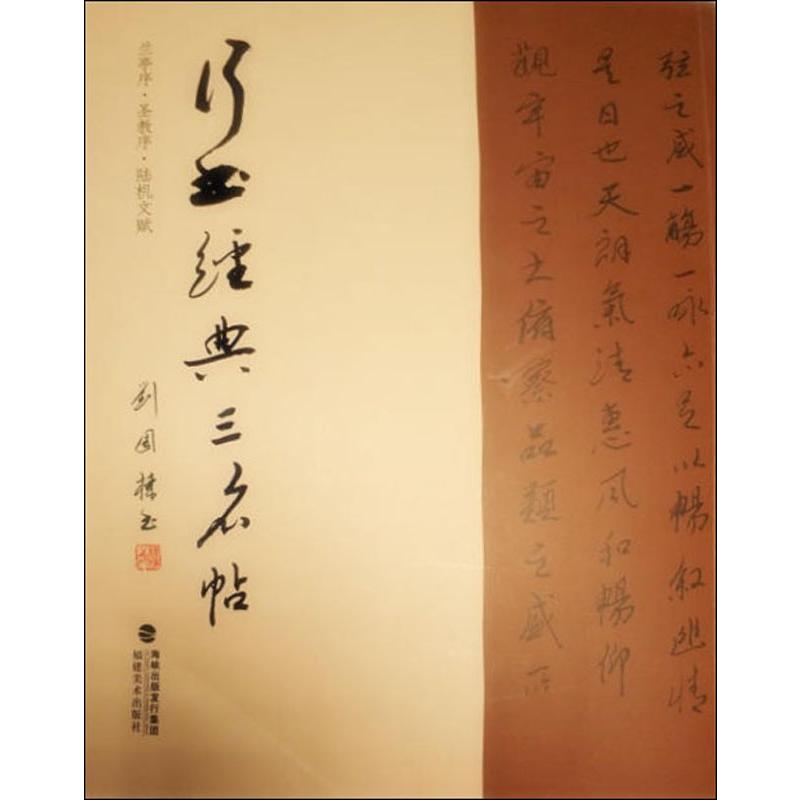 弦之盛一觴一咏亦足以暢敘幽情
是日也天朗氣清惠風和暢仰
觀宇宙之大俯察品類之盛所
行书經典三名帖
兰亭序·圣教序·陆机文赋
劉国樑书
海峡出版发行集团
福建美术出版社